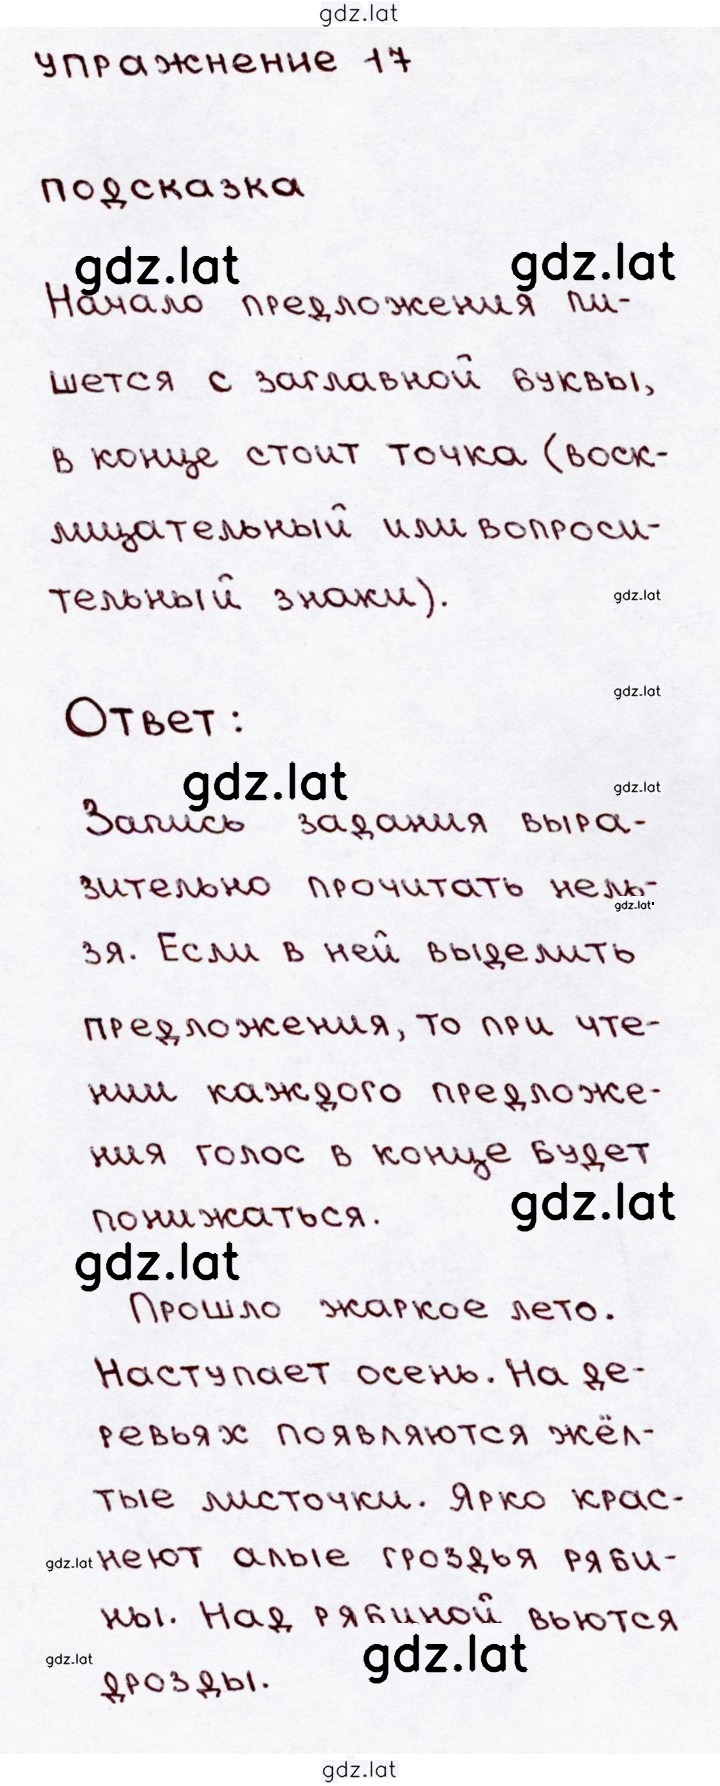 gdz.lat
упражнение 17
подсказка
gdz.lat gdz.lat
Начало предложения пи-
шется с заглавной буквы,
в конце стоит точка (воск-
лицательный или вопроси-
тельный знаки).
gdz.lat
gdz.lat
Ответ:
gdz.lat gdz.lat
Запись задания выра-
зительно прочитать нель-
gdz.lat
зя. Если в ней выделить
предложения, то при чте-
нии каждого предложе-
ния голос в конце будет
понижаться.
gdz.lat
gdz.lat
Прошло жаркое лето.
Наступает осень. На де-
ревьях появляются жёл-
тые листочки. Ярко крас-
gdz.lat неют алые гроздья ряби-
ны. Над рябиной вьются
gdz.lat gdz.lat
дрозды.
gdz.lat